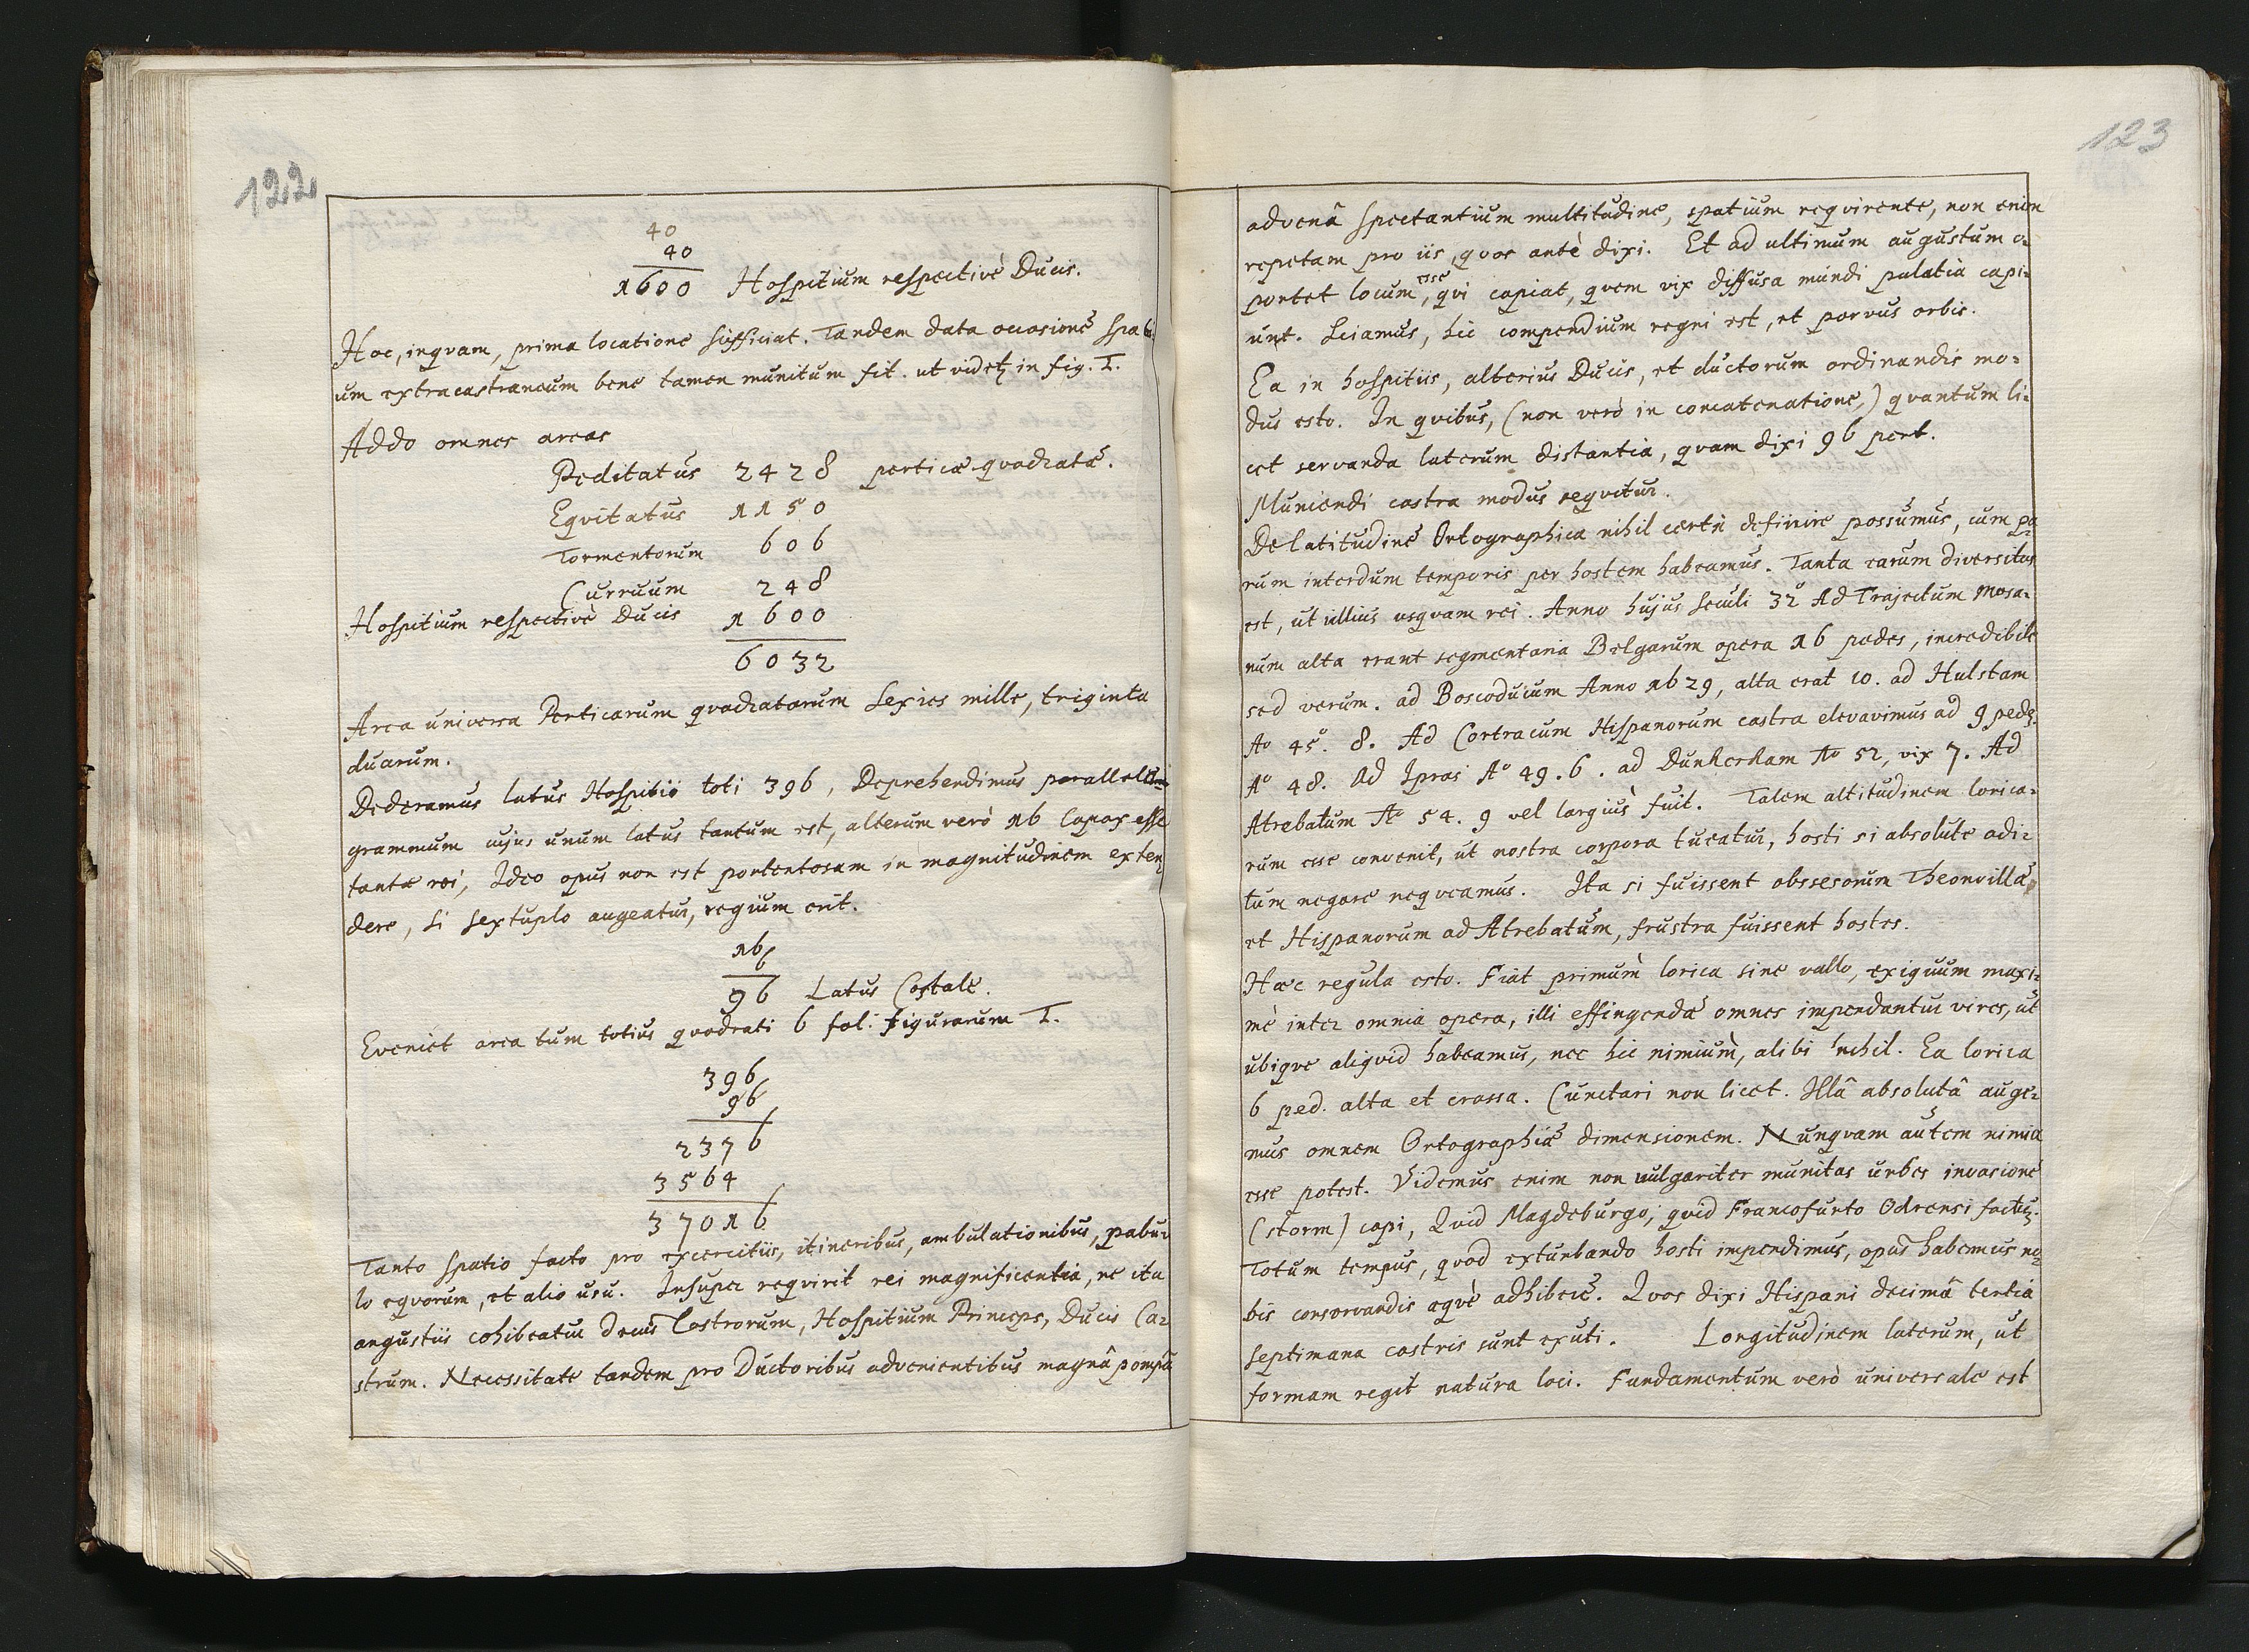 122
40
40
1600 Hospitium respectivè Ducis.
Hoc, inqvam, prima locatione sufficiat. Tandem data occasione spati-
um extracastraneum bene tamen munitum fit. ut videtʒ in fig. I.
Addo omnes areas
Peditatus 2428 perticæ qvadratæ.
Eqvitatus 1150
Tormentorum 606
Curruum 248
Hospitium respectivè Ducis 1600
6032
Area universa Perticarum qvadratarum Sexies mille, triginta
duarum.
Dederamus latus Hospitio toti 396, Deprehendimus parallelo-
grammum cujus unum latus tantum est, alterum verò 16 Capax esse
tantæ rei, Ideo opus non est portentosam in magnitudinem exten-
dere, si sextuplo augeatur, regium erit.
16
6
96 Latus Costale.
Eveniet area tum totius qvadrati 6 fol. figurarum I.
396
96
2376
3564
37016
Tanto spatio facto pro exercitiis, itineribus, ambulationibus, pabu-
lo eqvorum, et alio usu. Insuper reqvirit rei magnificentia, ne ita
angustiis cohibeatur decus Castrorum, Hospitium Princeps, Ducis Ca-
strum. Necessitate tandem pro Ductoribus advenientibus magnâ pompâ
123
advenâ spectantium multitudine, spatium reqvirente, non enim
repetam pro iis, qvos antè dixi. Et ad ultimum augustum o-
portet locum, esse qvi capiat, qvem vix diffusa mundi palatia capi-
unt. Sciamus, hic compendium regni est, et parvus orbis.
Ea in hospitiis, alterius Ducis, et ductorum ordinandis mo-
dus esto. In qvibus, (non verò in concatenatione,) qvantum li-
cet servanda laterum distantia, qvam dixi 96 pert.
Muniendi castra modus seqvitur.
De latitudine Ortographica nihil certi definire possumus, cum pa-
rum interdum temporis per hostem habeamus. Tanta earum diversitas
est, ut ullius usqvam rei. Anno hujus seculi 32º Ad Trajectum Mosa-
num alta erant segmentaria Belgarum opera 16 pedes, incredibile
sed verum. ad Boscoducum Anno 1629, alta erat 10. ad Hulstam
Aº 45º. 8. Ad Cortracum Hispanorum castra elevavimus ad 9 pedeʒ.
Aº 48. Ad Ipras Aº 49. 6. ad Dunkerkam Aº 52, vix 7. Ad
Atrebatum Aº 54. 9 vel largiùs fuit. Talem altitudinem lorica-
rum esse convenit, ut nostra corpora tueatur, hosti si absolute adi-
tum negare neqveamus. Ita si fuissent obssesorum Theonvillæ,
et Hispanorum ad Atrebatum, frustra fuissent hostes.
Hæc regula esto. Fiat primùm lorica sine vallo, exiguum maxi-
mè inter omnia opera, illi effingendæ omnes impendantur vires, ut
ubiqve aliqvid habeamus, nec hic nimiùm, alibi nihil. Ea lorica
6 ped. alta et crassa. Cunctari non licet. Illâ absolutâ auge-
mus omnem Ortographiæ dimensionem. Nunqvam autem nimia
esse potest. Videmus enim non vulgariter munitas urbes invasione
(storm) capi, Qvid Magdeburgo, qvid Francofurto Odrensi factuʒ.
Totum tempus, qvod exturbando hosti impendimus, opus habemus no-
bis conservandis æqvè adhibere. Qvos dixi Hispani decimâ tertiâ
septimana castris sunt exuti. Longitudinem laterum, ut
formam regit natura loci. Fundamentum verò universale est